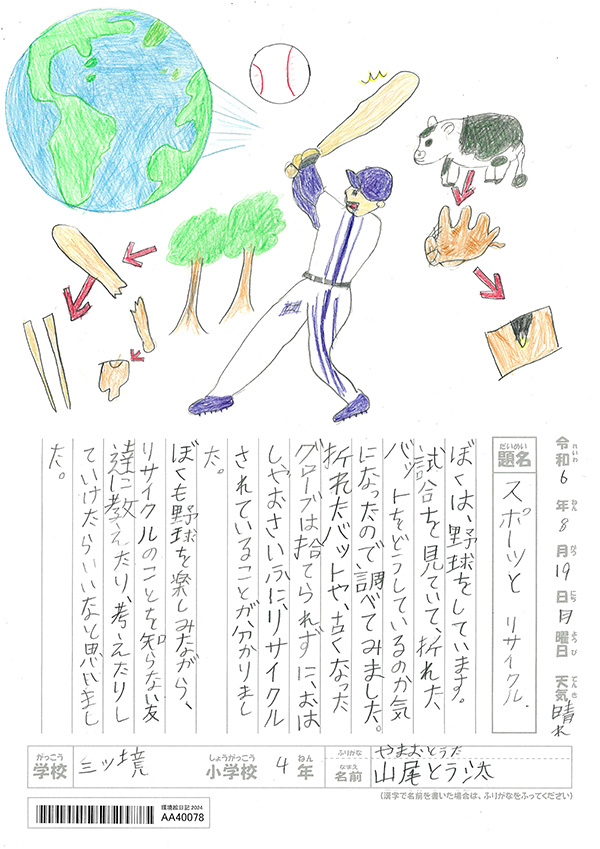 令和6年8月19日月曜日 天気 晴れ
れいわ ねん がつ にち ようび てんき
だいめい
題名
スポーツと リサイクル.
ぼくは、野球をしています。
試合を見ていて、折れた、
バットをどうしているのか気
になったので、調べてみました。
折れたバットや、古くなった
グローブは捨てられずに、おは
しやおさいふにリサイクル
されていることが、分かりまし
た。
ぼくも野球を楽しみながら、
リサイクルのことを知らない友
達に教えたり、考えたりし
ていけたらいいなと思いまし
た。
がっこう しょうがっこう ねん ふりがな やまおとうた
学校 三ッ境 小学校 4年 なまえ 名前 山尾とう汰
(漢字で名前を書いた場合は、ふりがなをふってください)
環境絵日記2024
AA40078